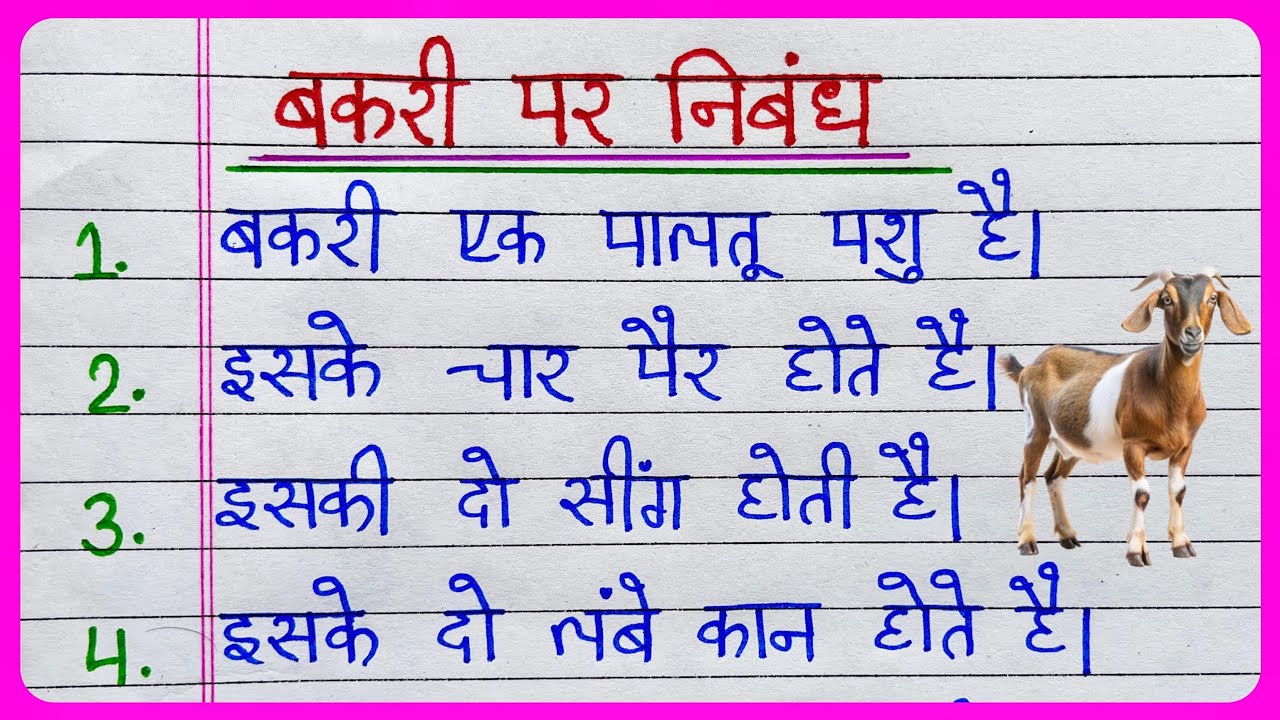 बकरी पर निबंध
1. बकरी एक पालतू पशु है।
2. इसके चार पैर होते है।
3. इसकी दो सींग होती है।
4. इसके दो लंबे कान होते है।